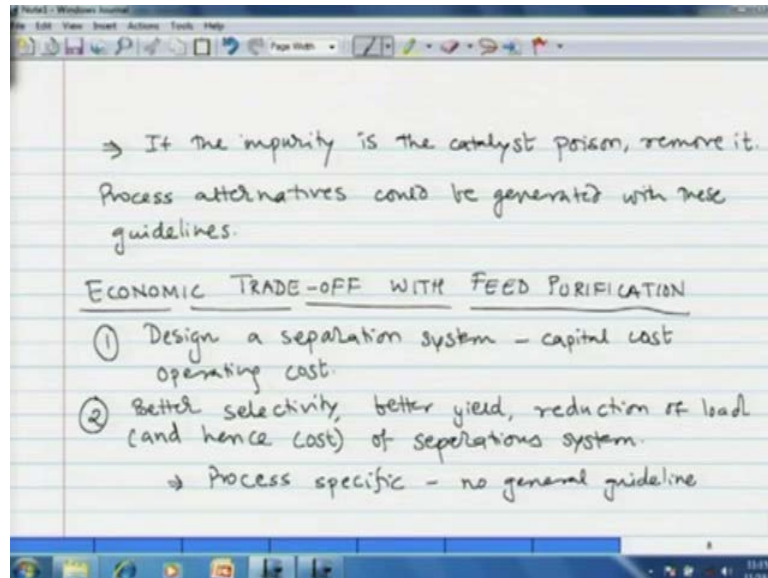 Note1 - Windows Journal
File Edit View Insert Actions Tools Help
Page Width
⇒ If the impurity is the catalyst poison, remove it.
Process alternatives could be generated with these
guidelines.
ECONOMIC TRADE-OFF WITH FEED PURIFICATION
① Design a separation system - capital cost
operating cost.
② Better selectivity, better yield, reduction of load
(and hence cost) of seperations system.
⇒ Process specific - no general guideline
8